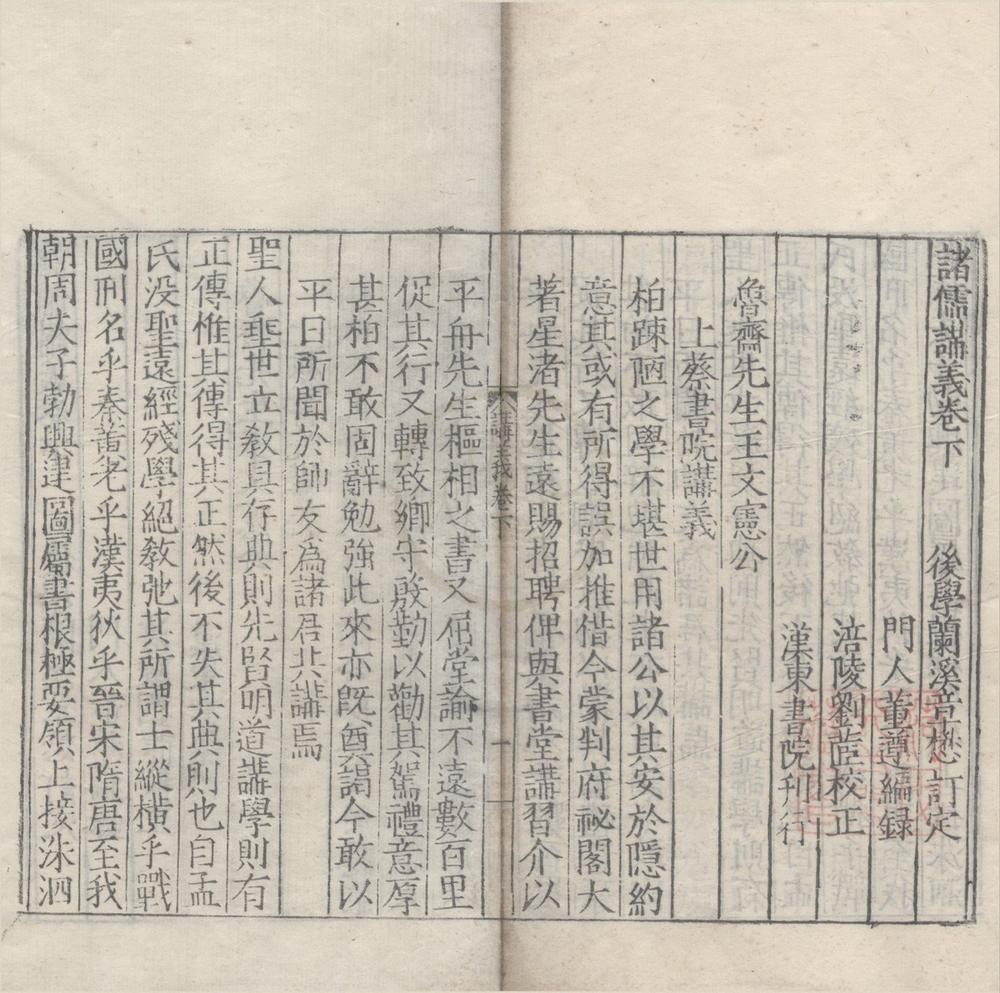 諸儒講義卷下
後學蘭溪章懋訂定
門人董遵編録
涪陵劉蒞校正
漢東書院刊行
魯齋先生王文憲公
上蔡書院講義
柏踈陋之學不堪世用諸公以其安於隱約
意其或有所得誤加推借今蒙判府祕閣大
著星渚先生遠賜招聘俾與書堂講習介以
講義卷下
一
平舟先生樞相之書又俻堂諭不遠數百里
促其行又轉致鄉守殷勤以勸其駕禮意厚
甚柏不敢固辭勉強此來亦旣奠謁今敢以
平日所聞於師友爲諸君共講焉
聖人垂世立敎具存典則先賢明道講學則有
正傳惟其傳得其正然後不失其典則也自孟
氏没聖遠經殘學絕敎弛其所謂士縱橫乎戰
國刑名乎秦黃老乎漢夷狄乎晉宋隋唐至我
朝周夫子勃興建圖屬書根極要領上接洙泗